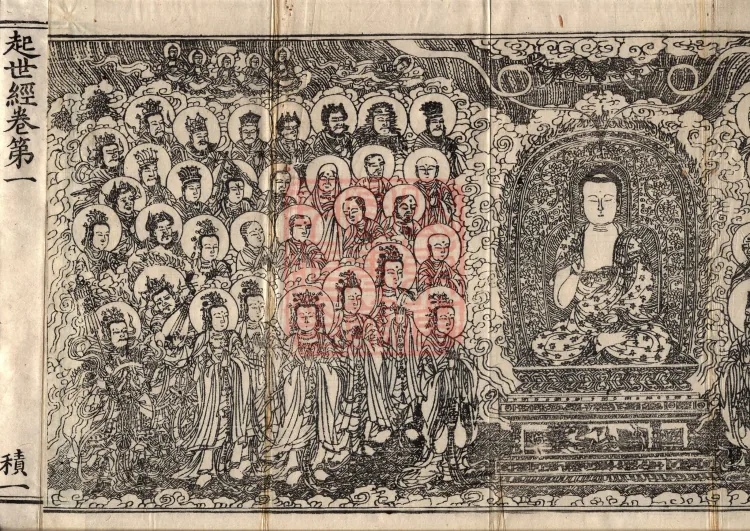 起世經卷第一
積一